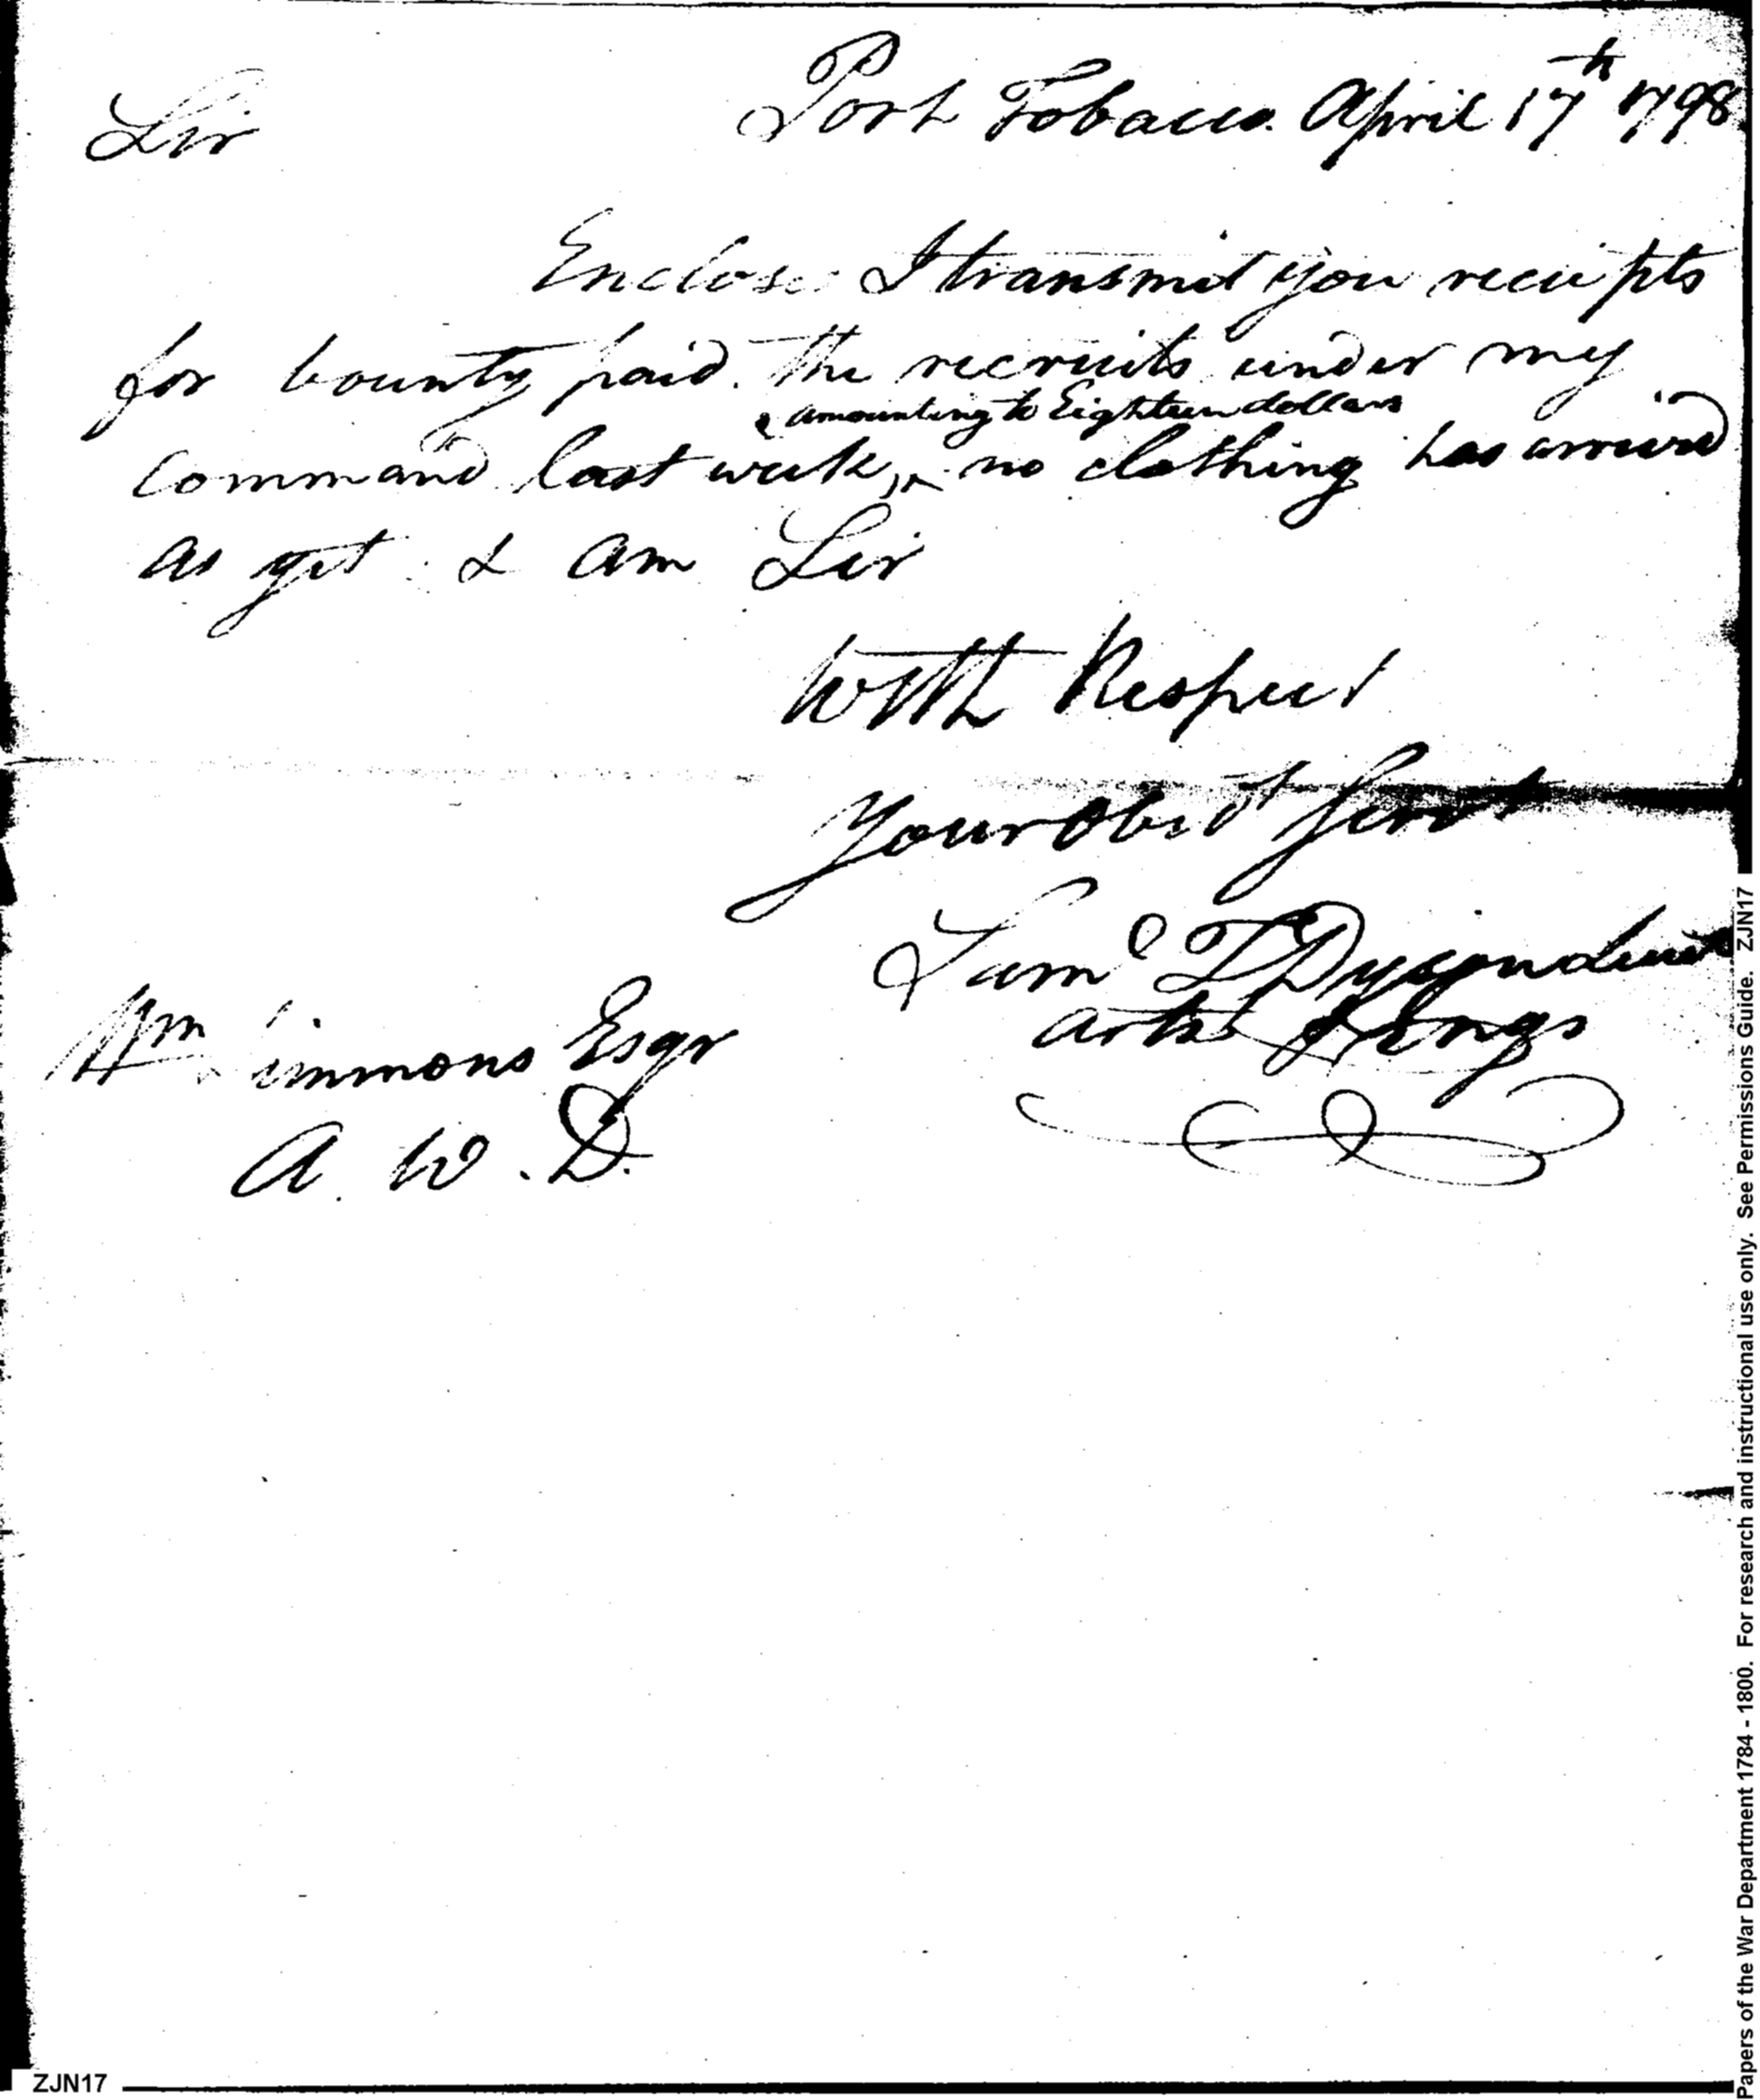 Port Tobacco. April 17th 1798
Sir
Enclosed I transmit you receipts
for bounty paid the recruits under my
amounting to Eighteen dollars
command last week, no clothing has arrived
as yet I am Sir
With Respect
Your Obedt Servt
Saml T Dyson Lieut
Artsts & Engs
Wm Simmons Esqr
A. W. D.
ZJN17
Papers of the War Department 1784 - 1800. For research and instructional use only. See Permissions Guide. ZJN17